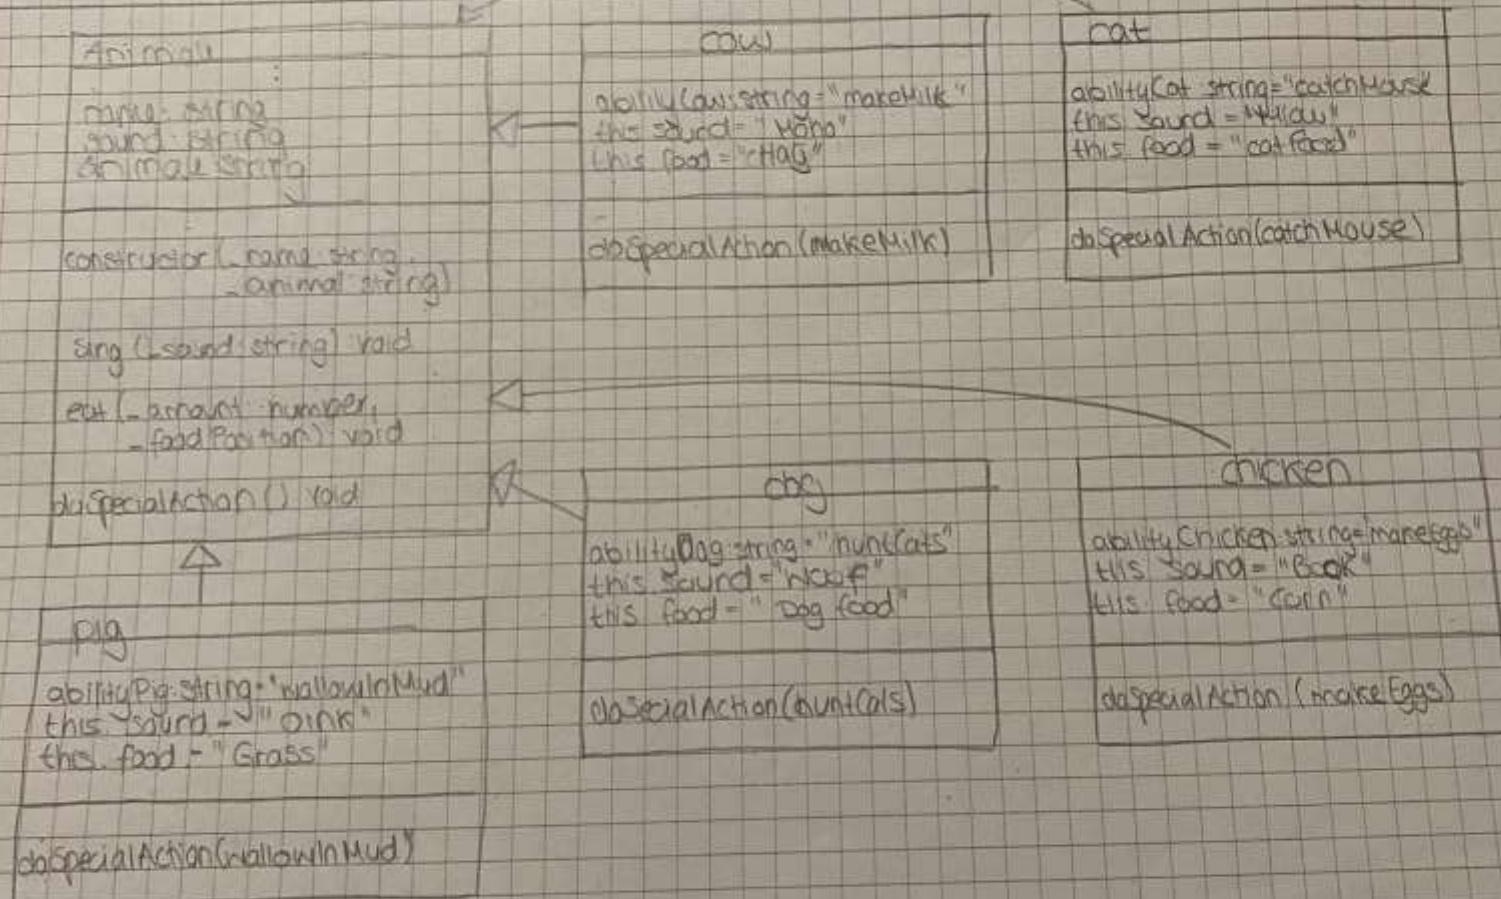 Animal
:
name: string
sound: string
Animal: string
constructor(_name: string,
_animal: string)
sing(_sound: string) void
eat(_amount: number,
_foodPosition): void
doSpecialAction() void
cow
abilityCow: string = "makeMilk"
this sound = "Mooo"
this food = "Hay"
doSpecialAction(makeMilk)
cat
abilityCat string = "catchMouse
this sound =
this food = "catfood"
doSpecialAction(catchMouse)
dog
abilityDog: string = "huntCats"
this sound = "Woof"
this food = "Dog food"
doSecialAction(huntCats)
chicken
abilityChicken string = "makeEggs"
this sound = "Book"
this food = "Corn"
doSpecialAction (makeEggs)
pig
abilityPig: string = "wallowInMud"
this sound = "Oink"
this food = "Grass"
doSpecialAction(wallowInMud)